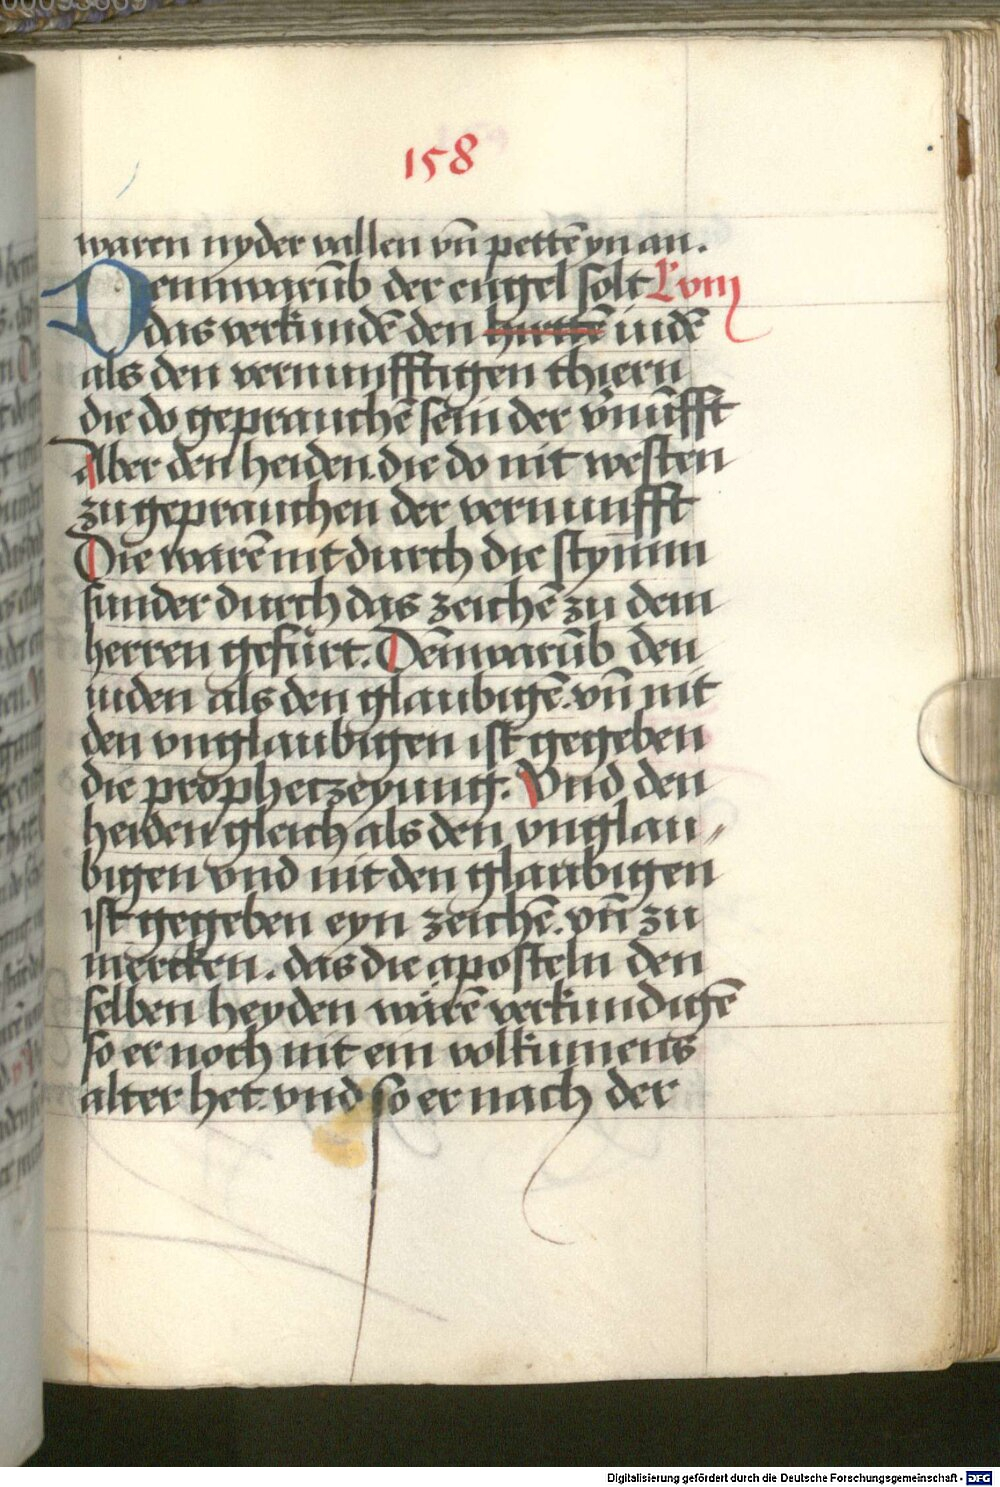 158
waren nyder vallen vn̄ pettē yn an.
Dennwarūb der engel solt Lviij
das verkundē den hirttē iudē
als den vernunfftigen thiern
die do geprauchē sein der v̄nūfft
Aber den heiden. die do nit westen
zu geprauchen der vernunfft
Die warē nit durch die stymm
sunder durch das zeichē zu dem
herren gefürt. Den̄warūb den
iuden als den glaubigē. vn̄ nit
den vnglaubigen ist gegeben
die prophetzeyung. Vnd den
heiden gleich als den vnglau⸗
bigen vnd nit den glaubigen
ist gegeben eyn zeichē. vn̄ zu
mercken. das die aposteln den
selben heyden warē verkundigē
so er noch nit ein volkumens
alter het. vnd so er nach der
Digitalisierung gefördert durch die Deutsche Forschungsgemeinschaft - DFG